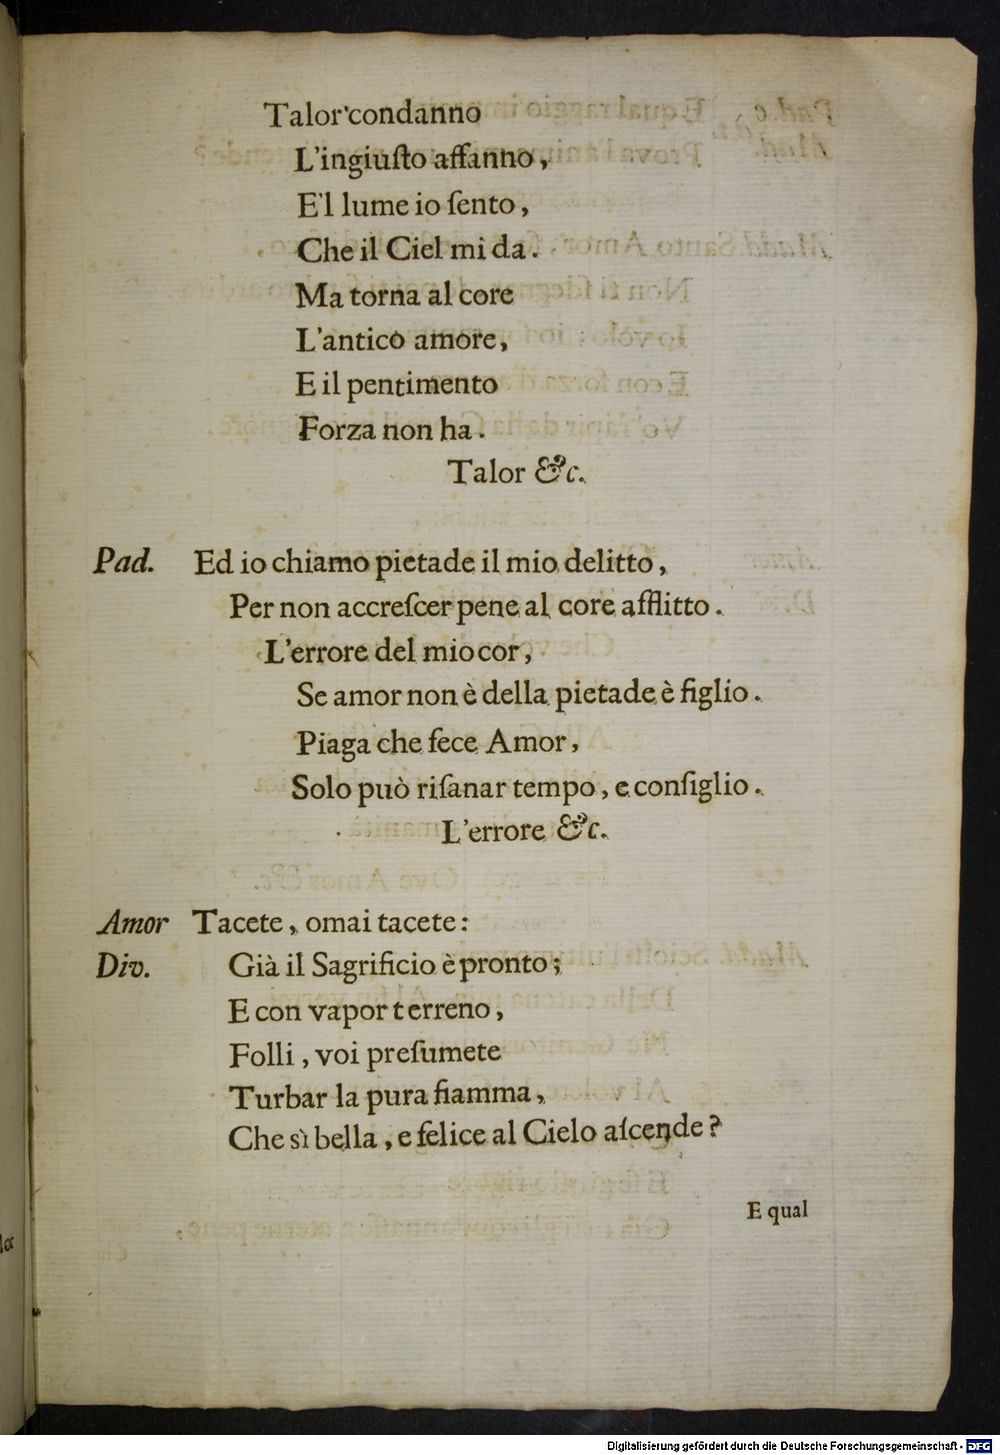 Talor condanno
L'ingiuſto affanno,
E'l lume io ſento,
Che il Ciel mi da.
Ma torna al core
L'antico amore,
E il pentimento
Forza non ha.
Talor &c.
Pad. Ed io chiamo pietade il mio delitto,
Per non accreſcer pene al core afflitto.
L'errore del mio cor,
Se amor non è della pietade è figlio.
Piaga che fece Amor,
Solo può riſanar tempo, e conſiglio.
L'errore &c.
Amor Tacete, omai tacete:
Div. Già il Sagrificio è pronto;
E con vapor terreno,
Folli, voi preſumete
Turbar la pura fiamma,
Che sì bella, e felice al Cielo aſcende?
E qual
Digitalisierung gefördert durch die Deutsche Forschungsgemeinschaft - DFG